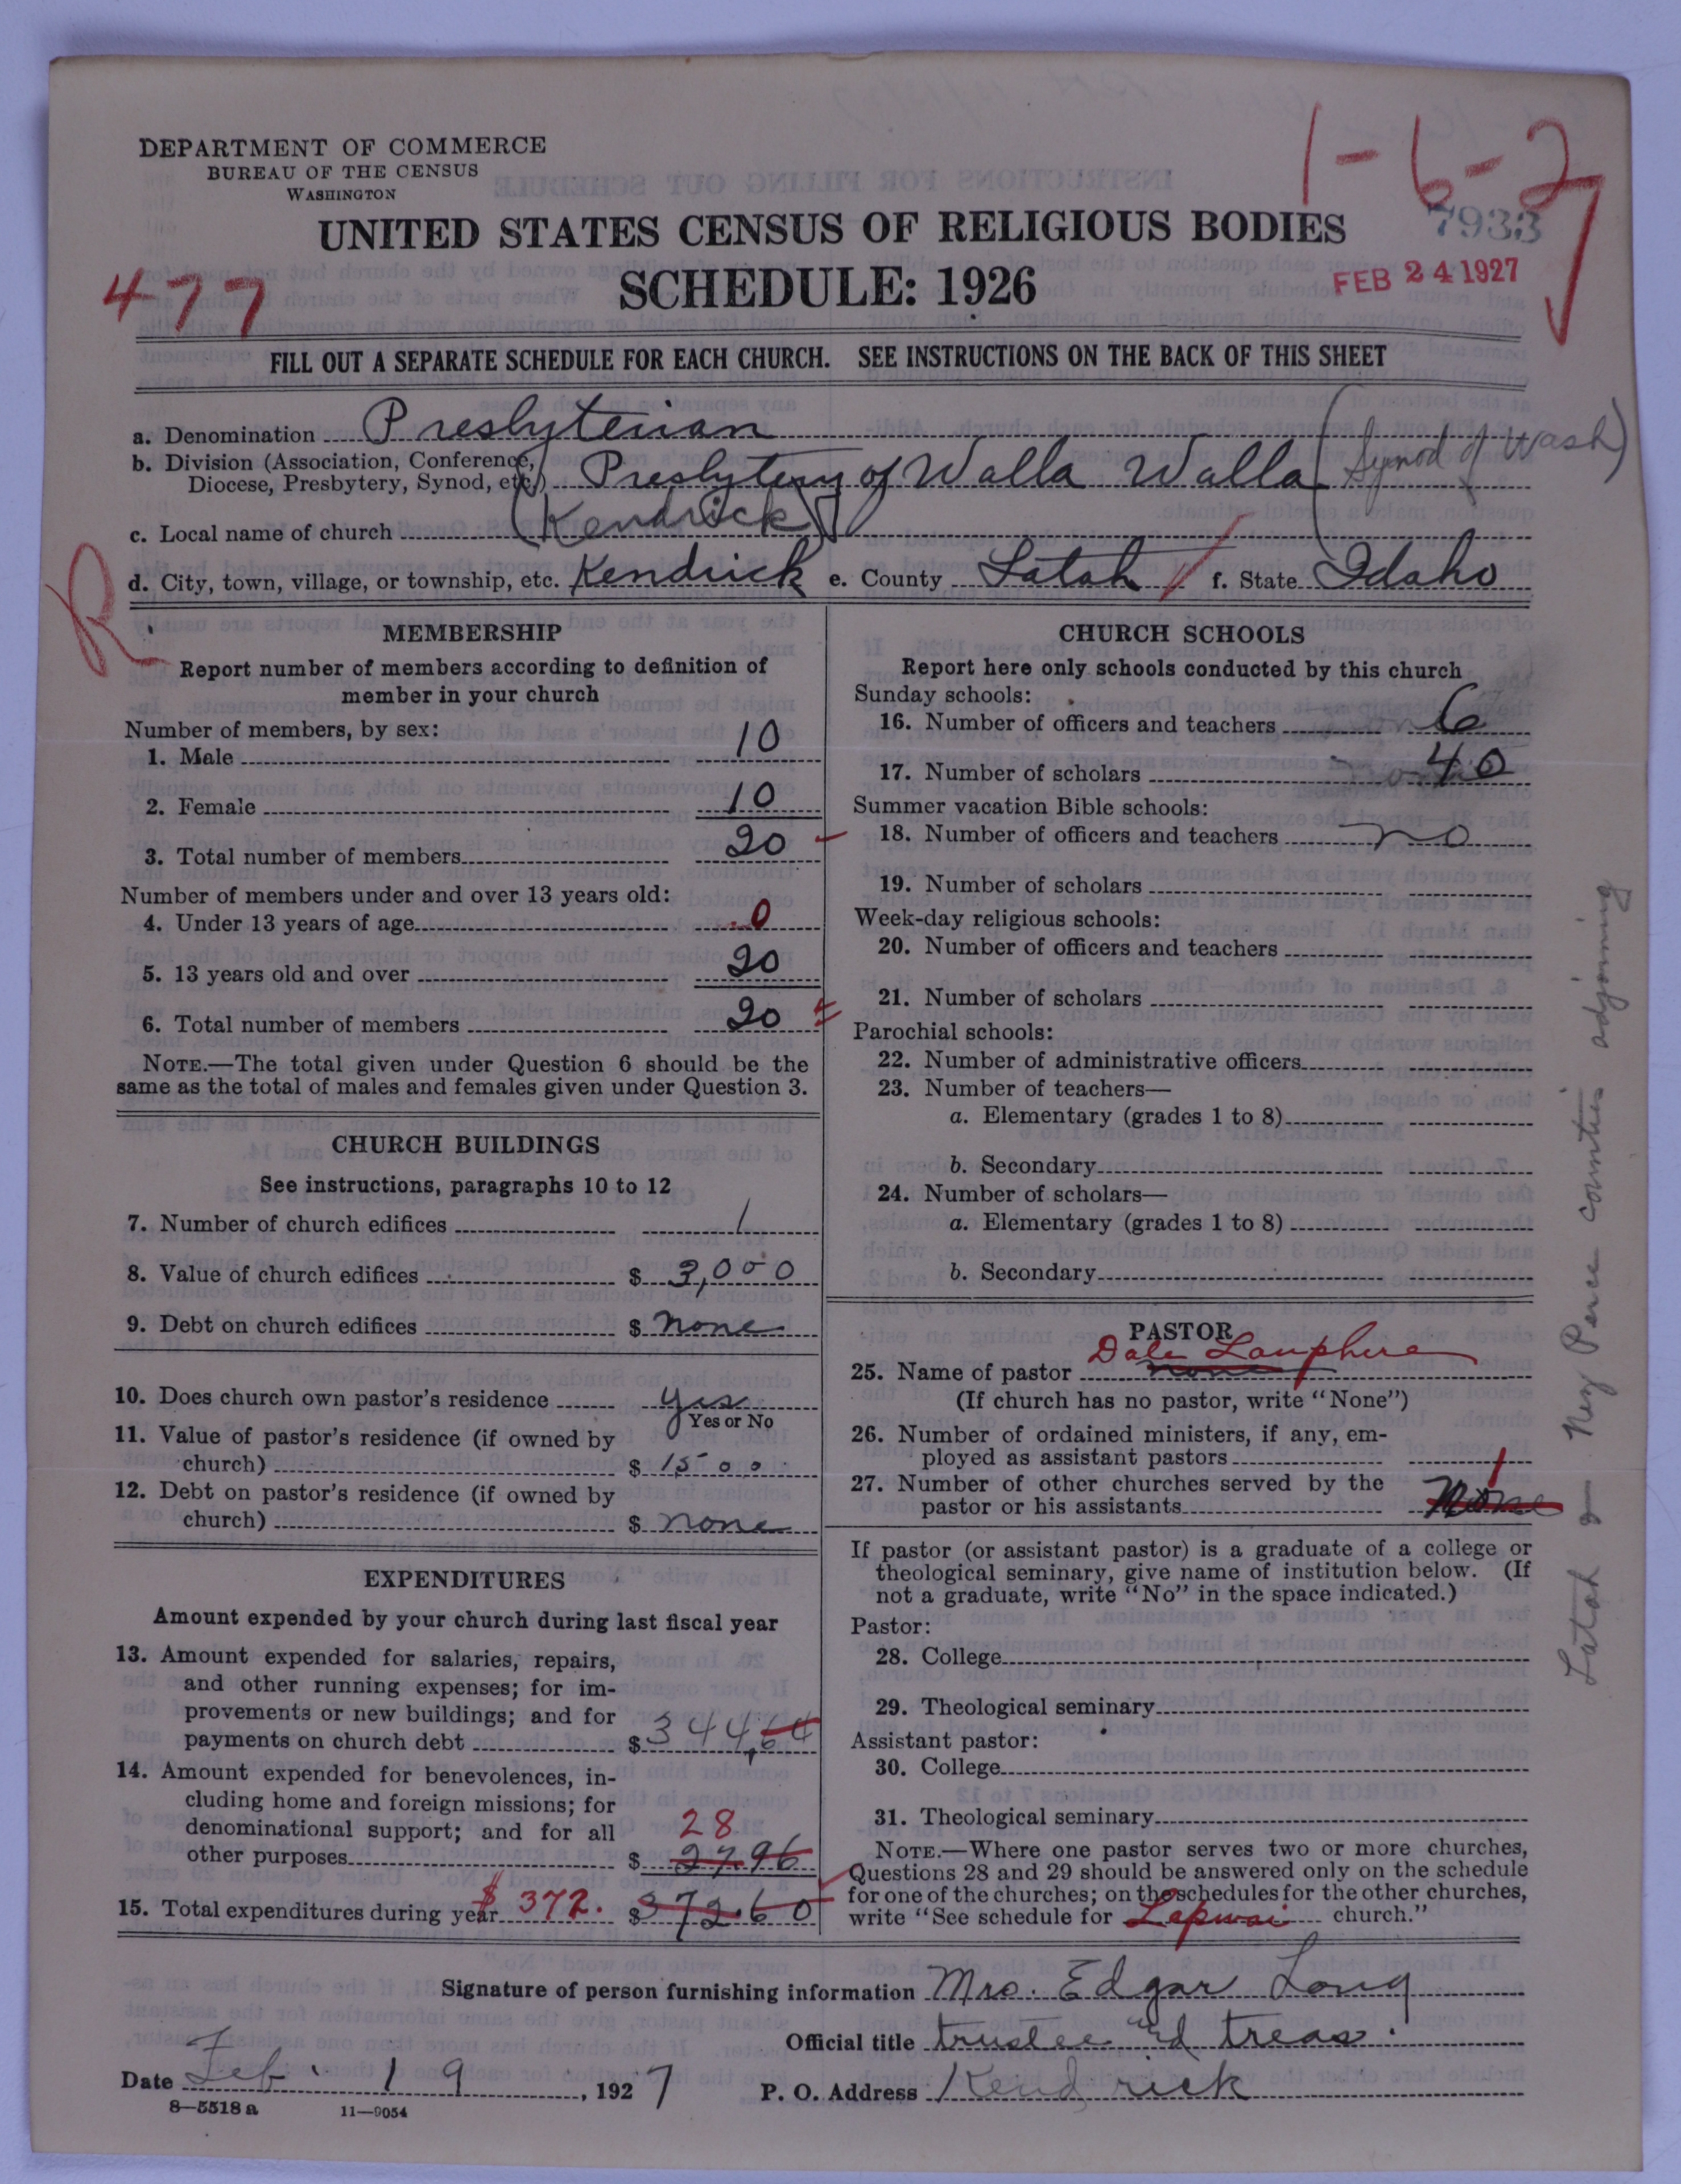 DEPARTMENT OF COMMERCE
BUREAU OF THE CENSUS
WASHINGTON
1-6-2
UNITED STATES CENSUS OF RELIGIOUS BODIES
7933
477
SCHEDULE: 1926
FEB 24 1927
FILL OUT A SEPARATE SCHEDULE FOR EACH CHURCH. SEE INSTRUCTIONS ON THE BACK OF THIS SHEET
a. Denomination Presbyterian
b. Division (Association, Conference, Diocese, Presbytery, Synod, etc.) Presbytery of Walla Walla (Synod of Wash)
c. Local name of church (Kendrick)
d. City, town, village, or township, etc. Kendrick e. County Latah f. State Idaho
R
MEMBERSHIP
Report number of members according to definition of
member in your church
Number of members, by sex:
1. Male 10
2. Female 10
3. Total number of members 20
Number of members under and over 13 years old:
4. Under 13 years of age 0
5. 13 years old and over 20
6. Total number of members 20
NOTE.—The total given under Question 6 should be the
same as the total of males and females given under Question 3.
CHURCH BUILDINGS
See instructions, paragraphs 10 to 12
7. Number of church edifices 1
8. Value of church edifices $ 3,000
9. Debt on church edifices $ none
10. Does church own pastor's residence yes
Yes or No
11. Value of pastor's residence (if owned by
church) $ 1500
12. Debt on pastor's residence (if owned by
church) $ none
EXPENDITURES
Amount expended by your church during last fiscal year
13. Amount expended for salaries, repairs,
and other running expenses; for im-
provements or new buildings; and for
payments on church debt $ 344.64
14. Amount expended for benevolences, in-
cluding home and foreign missions; for
denominational support; and for all
28
other purposes $ 27.96
15. Total expenditures during year $ 372. $ 372.60
CHURCH SCHOOLS
Report here only schools conducted by this church
Sunday schools:
16. Number of officers and teachers 6
17. Number of scholars 40
Summer vacation Bible schools:
18. Number of officers and teachers no
19. Number of scholars
Week-day religious schools:
20. Number of officers and teachers
21. Number of scholars
Parochial schools:
22. Number of administrative officers
23. Number of teachers—
a. Elementary (grades 1 to 8)
b. Secondary
24. Number of scholars—
a. Elementary (grades 1 to 8)
b. Secondary
PASTOR
Dale Lanphere
25. Name of pastor none
(If church has no pastor, write "None")
26. Number of ordained ministers, if any, em-
ployed as assistant pastors
27. Number of other churches served by the
1
pastor or his assistants None
If pastor (or assistant pastor) is a graduate of a college or
theological seminary, give name of institution below. (If
not a graduate, write "No" in the space indicated.)
Pastor:
28. College
29. Theological seminary
Assistant pastor:
30. College
31. Theological seminary
NOTE.—Where one pastor serves two or more churches,
Questions 28 and 29 should be answered only on the schedule
for one of the churches; on the schedules for the other churches,
write "See schedule for Lapwai church."
Latah & Nez Perce counties adjoining
Signature of person furnishing information Mrs. Edgar Long
Official title trustee and treas.
Date Feb. 19, 1927 P. O. Address Kendrick
8—5518 a 11—9054